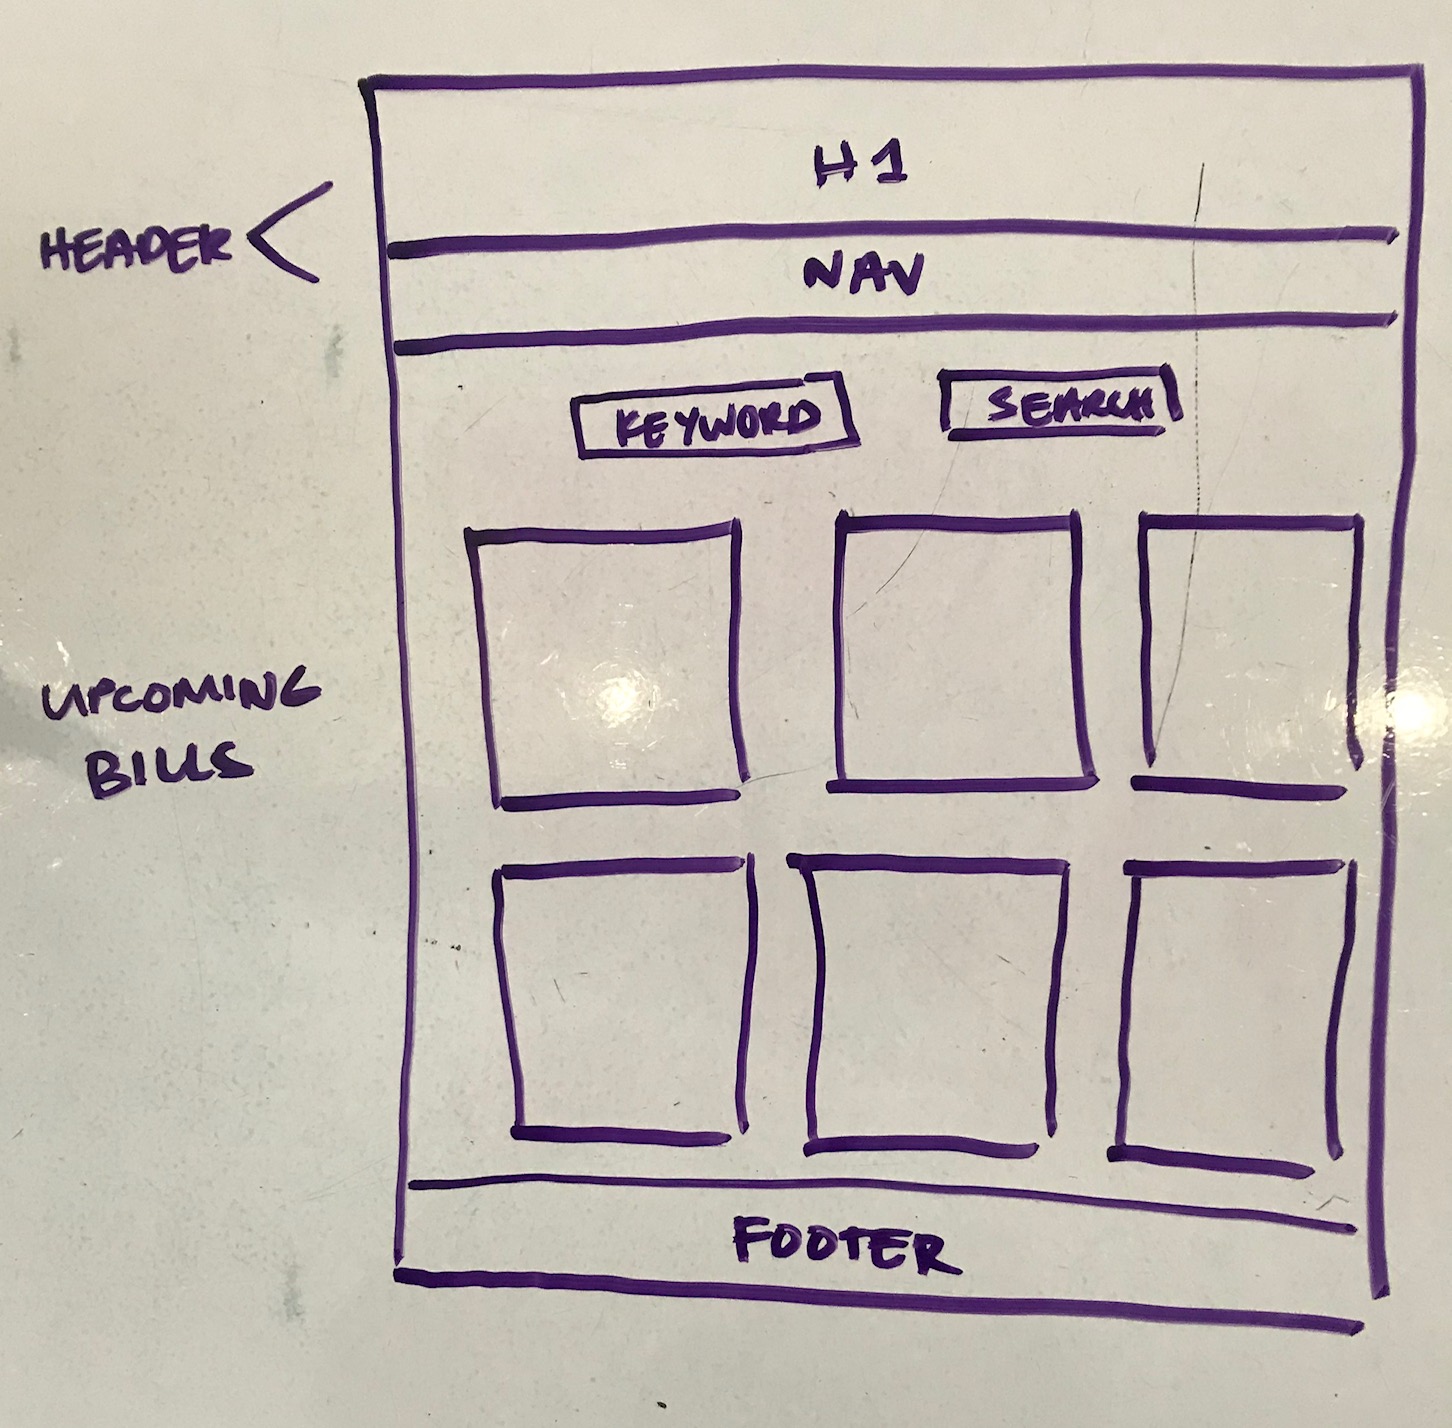 H1
HEADER
NAV
KEYWORD
SEARCH
UPCOMING
BILLS
FOOTER